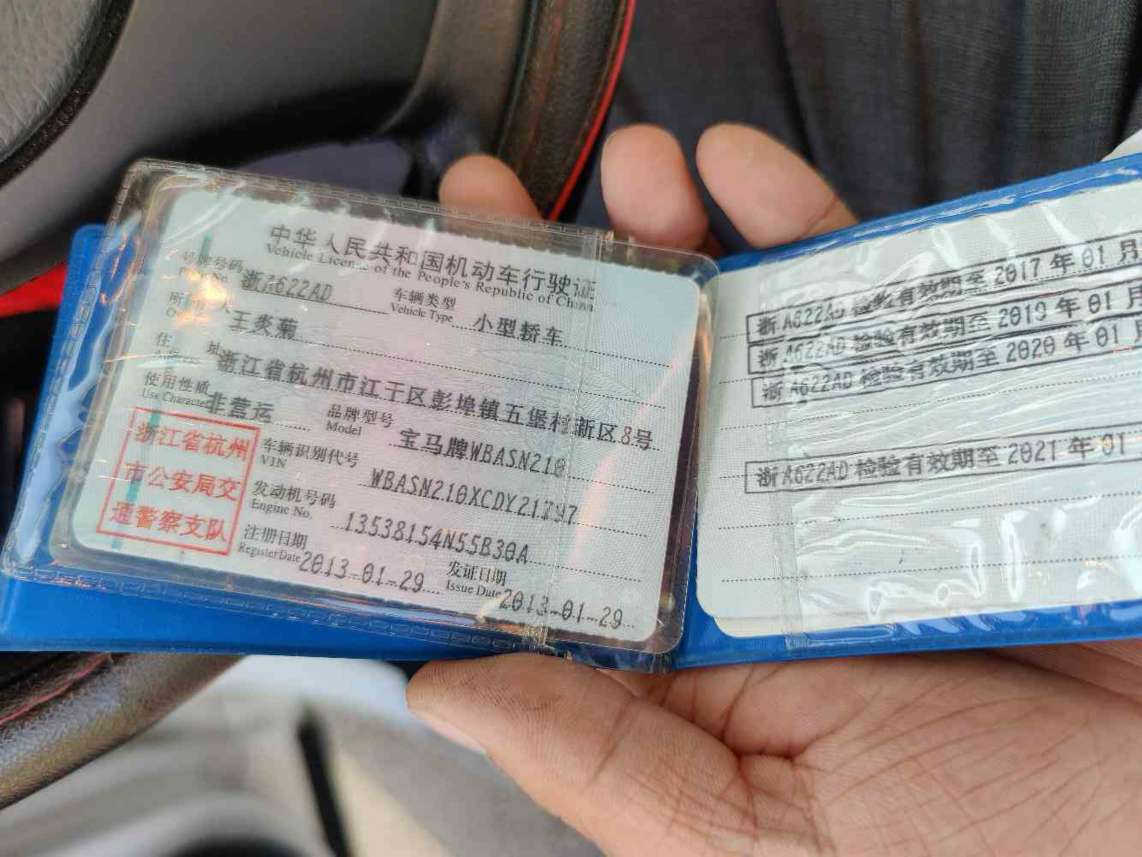 中华人民共和国机动车行驶证
Vehicle License of the People's Republic of China
号牌号码 浙A622AD 车辆类型 小型轿车
Plate No. Vehicle Type
所有人 王炎菊
住址 浙江省杭州市江干区彭埠镇五堡村新区8号
使用性质 非营运 品牌型号 宝马牌WBASN210
Use Character Model
浙江省杭州
市公安局交
通警察支队
车辆识别代号 WBASN210XCDY21797
VIN
发动机号码 13538154N55B30A
Engine No.
注册日期 2013-01-29 发证日期 2013-01-29
Register Date Issue Date
浙A622AD 检验有效期至 2017年01月
浙A622AD 检验有效期至 2019年01月
浙A622AD 检验有效期至 2020年01月
浙A622AD 检验有效期至 2021年01